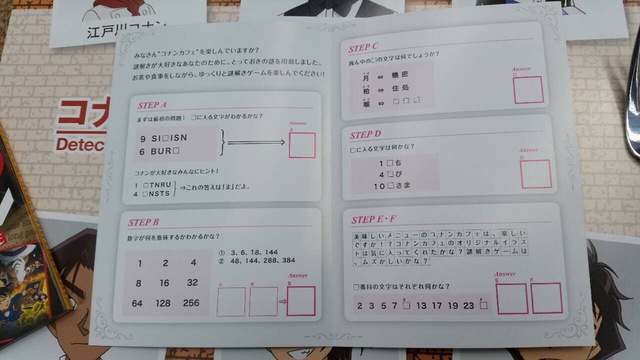 江戸川コナン
コナ
Detec
みなさん"コナンカフェ"を楽しんでいますか?
謎解きが大好きなあなたのために、とっておきの謎を用意しました。
お茶や食事をしながら、ゆっくりと謎解きゲームを楽しんでください!
STEP A
まずは最初の問題! □に入る文字がわかるかな?
9 SI□ISN
6 BUR□
Answer
A
コナンが大好きなみんなにヒント!
1 □TNRU
4 □NSTS
⇒この答えは「ま」だよ。
STEP B
数字が何を意味するかわかるかな?
1 2 4
8 16 32
64 128 256
① 3、6、18、144
② 48、144、288、384
Answer
B
STEP C
真ん中の□の文字は何でしょうか?
月 ⇔ 機密
粕 ⇔ 住処
⇔ □□□
Answer
C
STEP D
□に入る文字は何かな?
1□ち
4□び
10□さま
Answer
D
STEP E・F
美味しいメニューのコナンカフェは、楽しい
ですか?コナンカフェのオリジナルイラス
トは気に入ってくれたかな?謎解きゲームは
、ムズかしいかな?
□番目の文字はそれぞれ何かな?
2 3 5 7 □ 13 17 19 23 □
Answer
E F